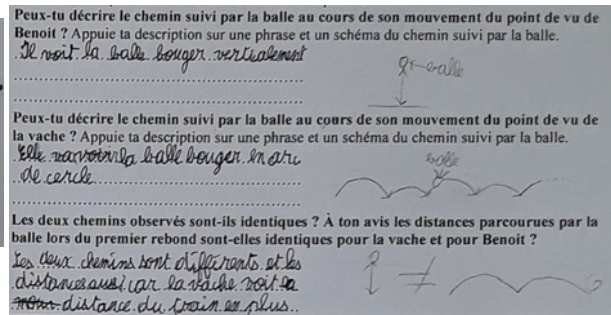 Peux-tu décrire le chemin suivi par la balle au cours de son mouvement du point de vu de
Benoit ? Appuie ta description sur une phrase et un schéma du chemin suivi par la balle.
Il voit la balle bouger vertualement
balle
Peux-tu décrire le chemin suivi par la balle au cours de son mouvement du point de vu de
la vache ? Appuie ta description sur une phrase et un schéma du chemin suivi par la balle.
Elle va voir la balle bouger en arc
de cercle
balle
Les deux chemins observés sont-ils identiques ? À ton avis les distances parcourues par la
balle lors du premier rebond sont-elles identiques pour la vache et pour Benoit ?
Les deux chemins sont différents et les
distances aussi car la vache voit la
distance du train en plus
≠